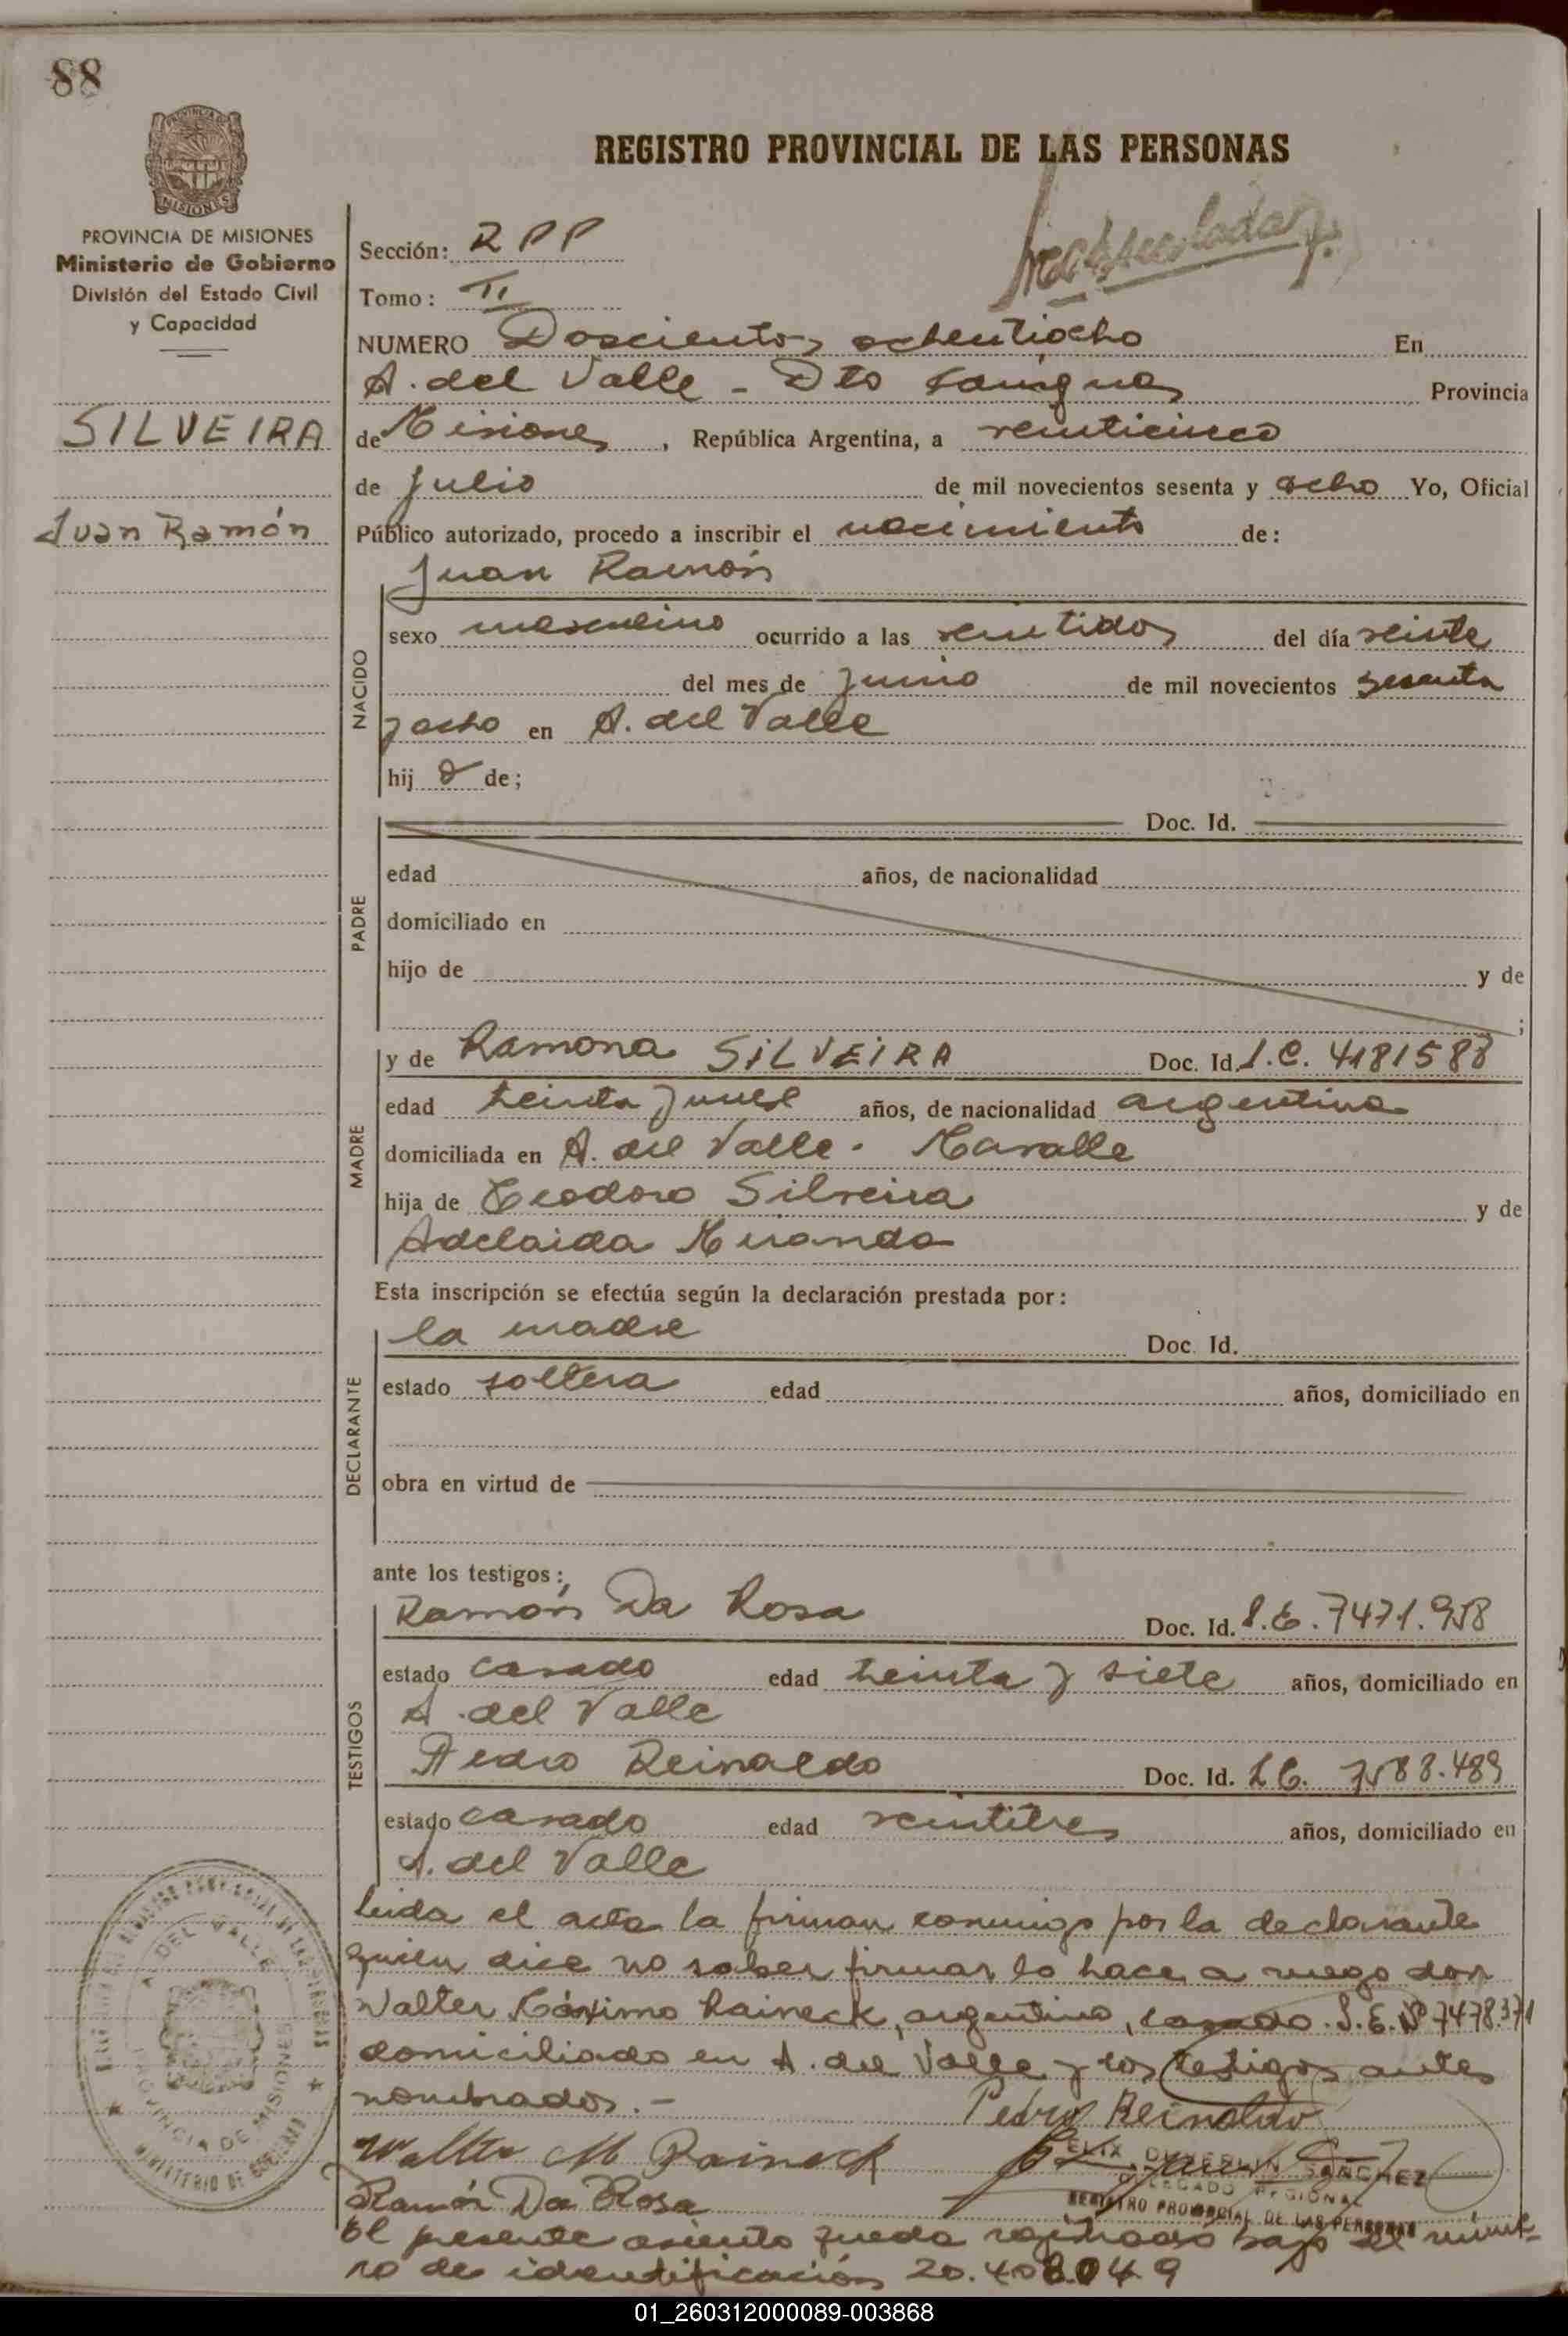 88
REGISTRO PROVINCIAL DE LAS PERSONAS
MISIONES
PROVINCIA DE MISIONES
Ministerio de Gobierno
División del Estado Civil
y Capacidad
SILVEIRA
Juan Ramón
Sección: RPP
Tomo: II
NUMERO Doscientos ochentiocho En
A. del Valle - Dto Cainguas Provincia
de Misiones, República Argentina, a veinticinco
de Julio de mil novecientos sesenta y ocho Yo, Oficial
Público autorizado, procedo a inscribir el nacimiento de:
Juan Ramón
NACIDO
sexo masculino ocurrido a las veintidos del día veinte
del mes de junio de mil novecientos sesenta
y ocho en A. del Valle
hij o de;
PADRE
Doc. Id.
edad años, de nacionalidad
domiciliado en
hijo de y de
;
MADRE
y de Ramona SILVEIRA Doc. Id. L.C. 4181588
edad treinta y nueve años, de nacionalidad argentina
domiciliada en A. del Valle.
hija de Teodoro Silveira y de
Adelaida Miranda
Esta inscripción se efectúa según la declaración prestada por:
DECLARANTE
la madre Doc. Id.
estado soltera edad años, domiciliado en
obra en virtud de
ante los testigos:
TESTIGOS
Ramón Da Rosa Doc. Id. L.E. 7471.958
estado casado edad treinta y siete años, domiciliado en
A. del Valle
Pedro Reinaldo Doc. Id. L.E. 7588.489
estado casado edad veintitres años, domiciliado en
A. del Valle
Leida el acta la firman conmigo por la declarante
quien dice no saber firmar lo hace a ruego don
Walter Máximo Raineck, argentino, casado. L.E. Nº 7478371
domiciliado en A. del Valle y los testigos antes
nombrados.-
Pedro Reinaldo
Walter M Raineck
SANCHEZ
DELEGADO REGIONAL
REGISTRO PROVINCIAL DE LAS PERSONAS
Ramón Da Rosa
El presente asiento queda registrado bajo el núme-
ro de identificación 20.408.049
A. DEL VALLE
PROVINCIA DE MISIONES
MINISTERIO DE GOBIERNO
01_260312000089-003868